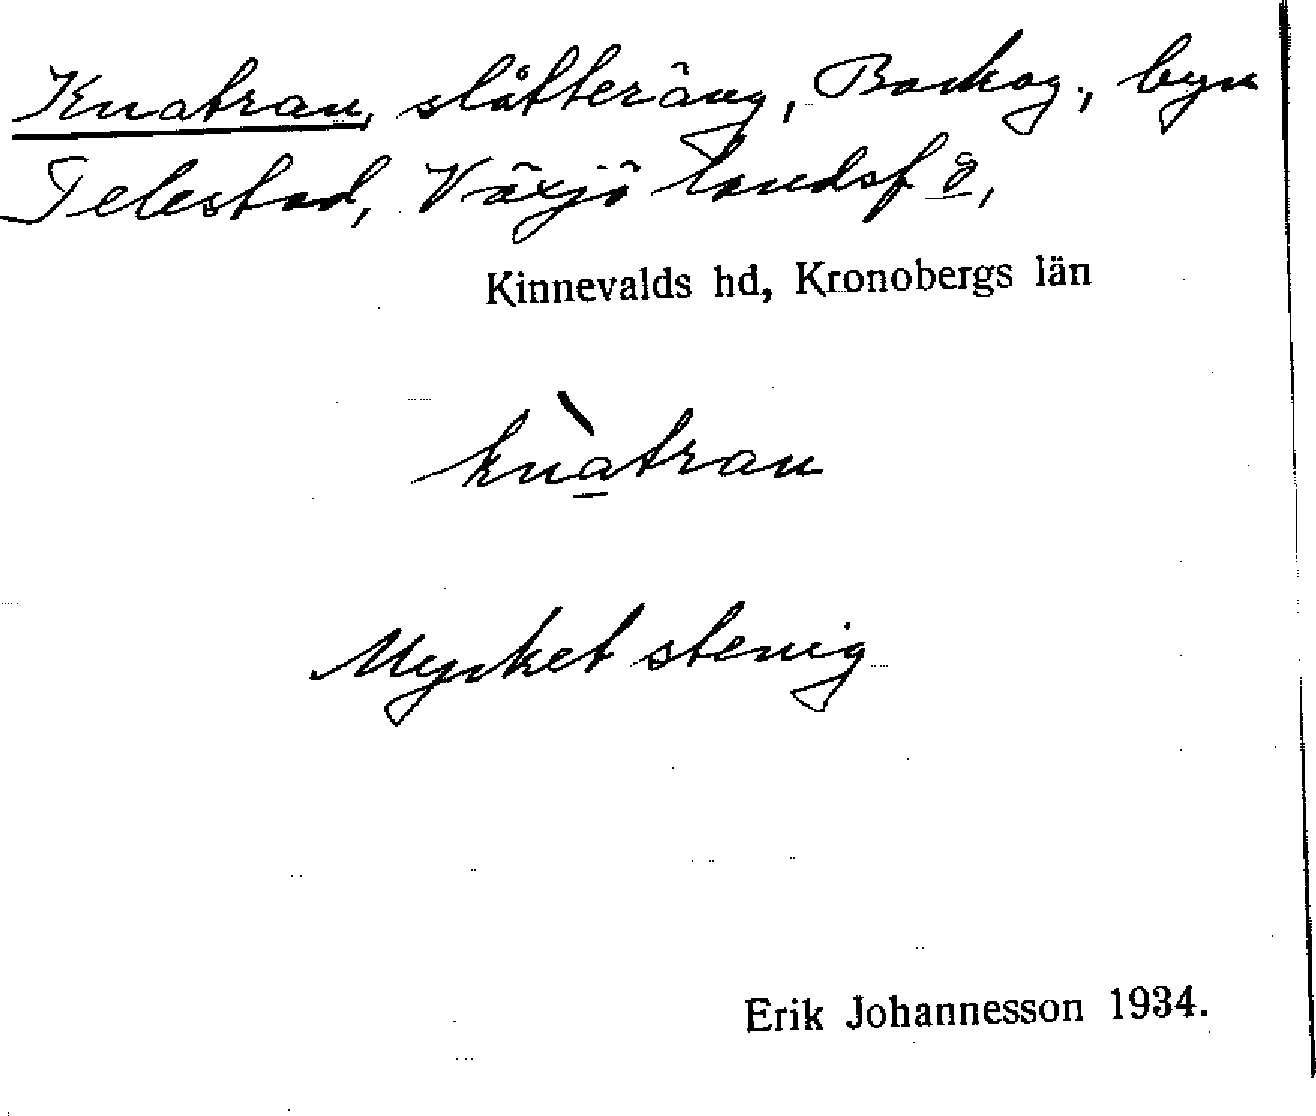 Knatran, slåtteräng, Backog., byn
Telestad, Växjö landsf g,
Kinnevalds hd, Kronobergs län
knàtran
Mycket stenig
Erik Johannesson 1934.